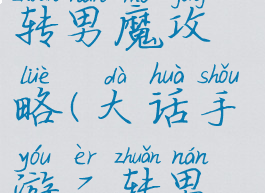 转男魔攻
lüè dà huà shǒu
略(大话手
yóu èr zhuǎn nán
游二转男